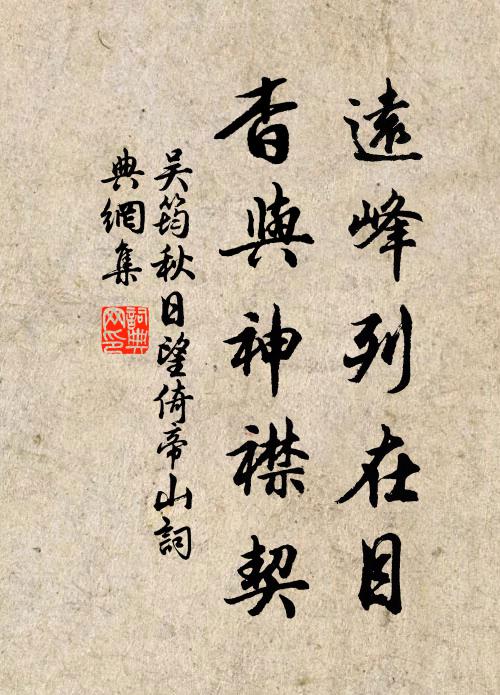 遠峰列在目
杳與神襟契
吳筠秋日望倚帝山詞
典網集
詞典
网印